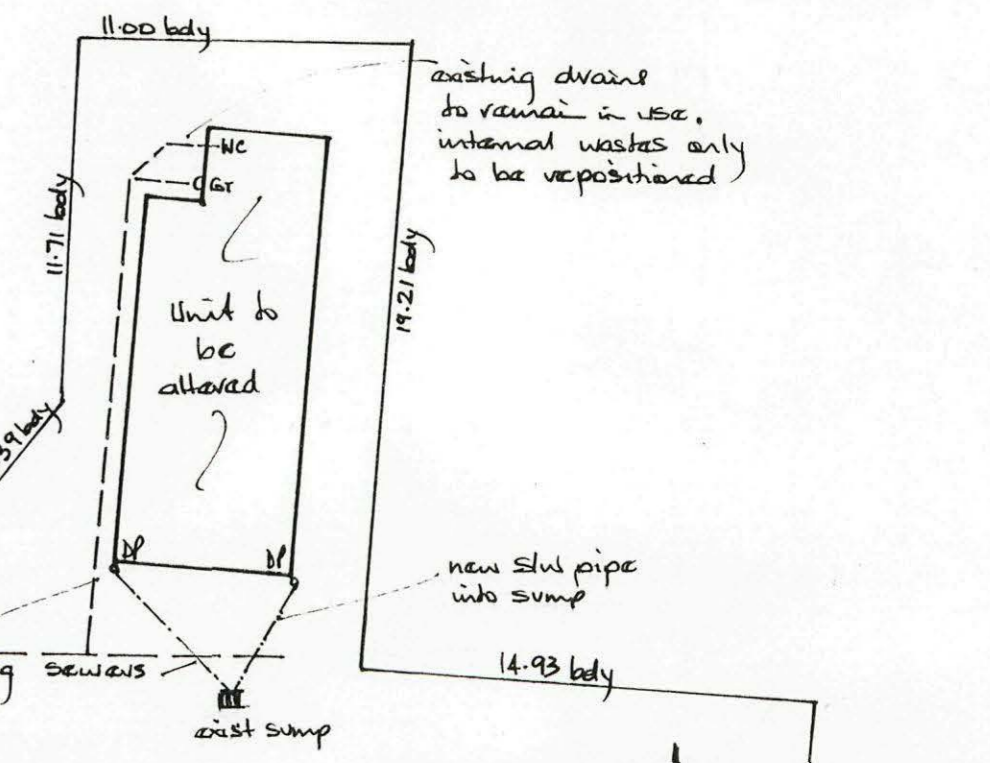 11.00 bdy
existing drains
to remain in use.
internal wastes only
to be repositioned
WC
GT
11.71 bdy
19.21 bdy
Unit to
be
altered
39 bdy
DP
DP
new S/W pipe
into sump
g sewers
14.93 bdy
exist sump